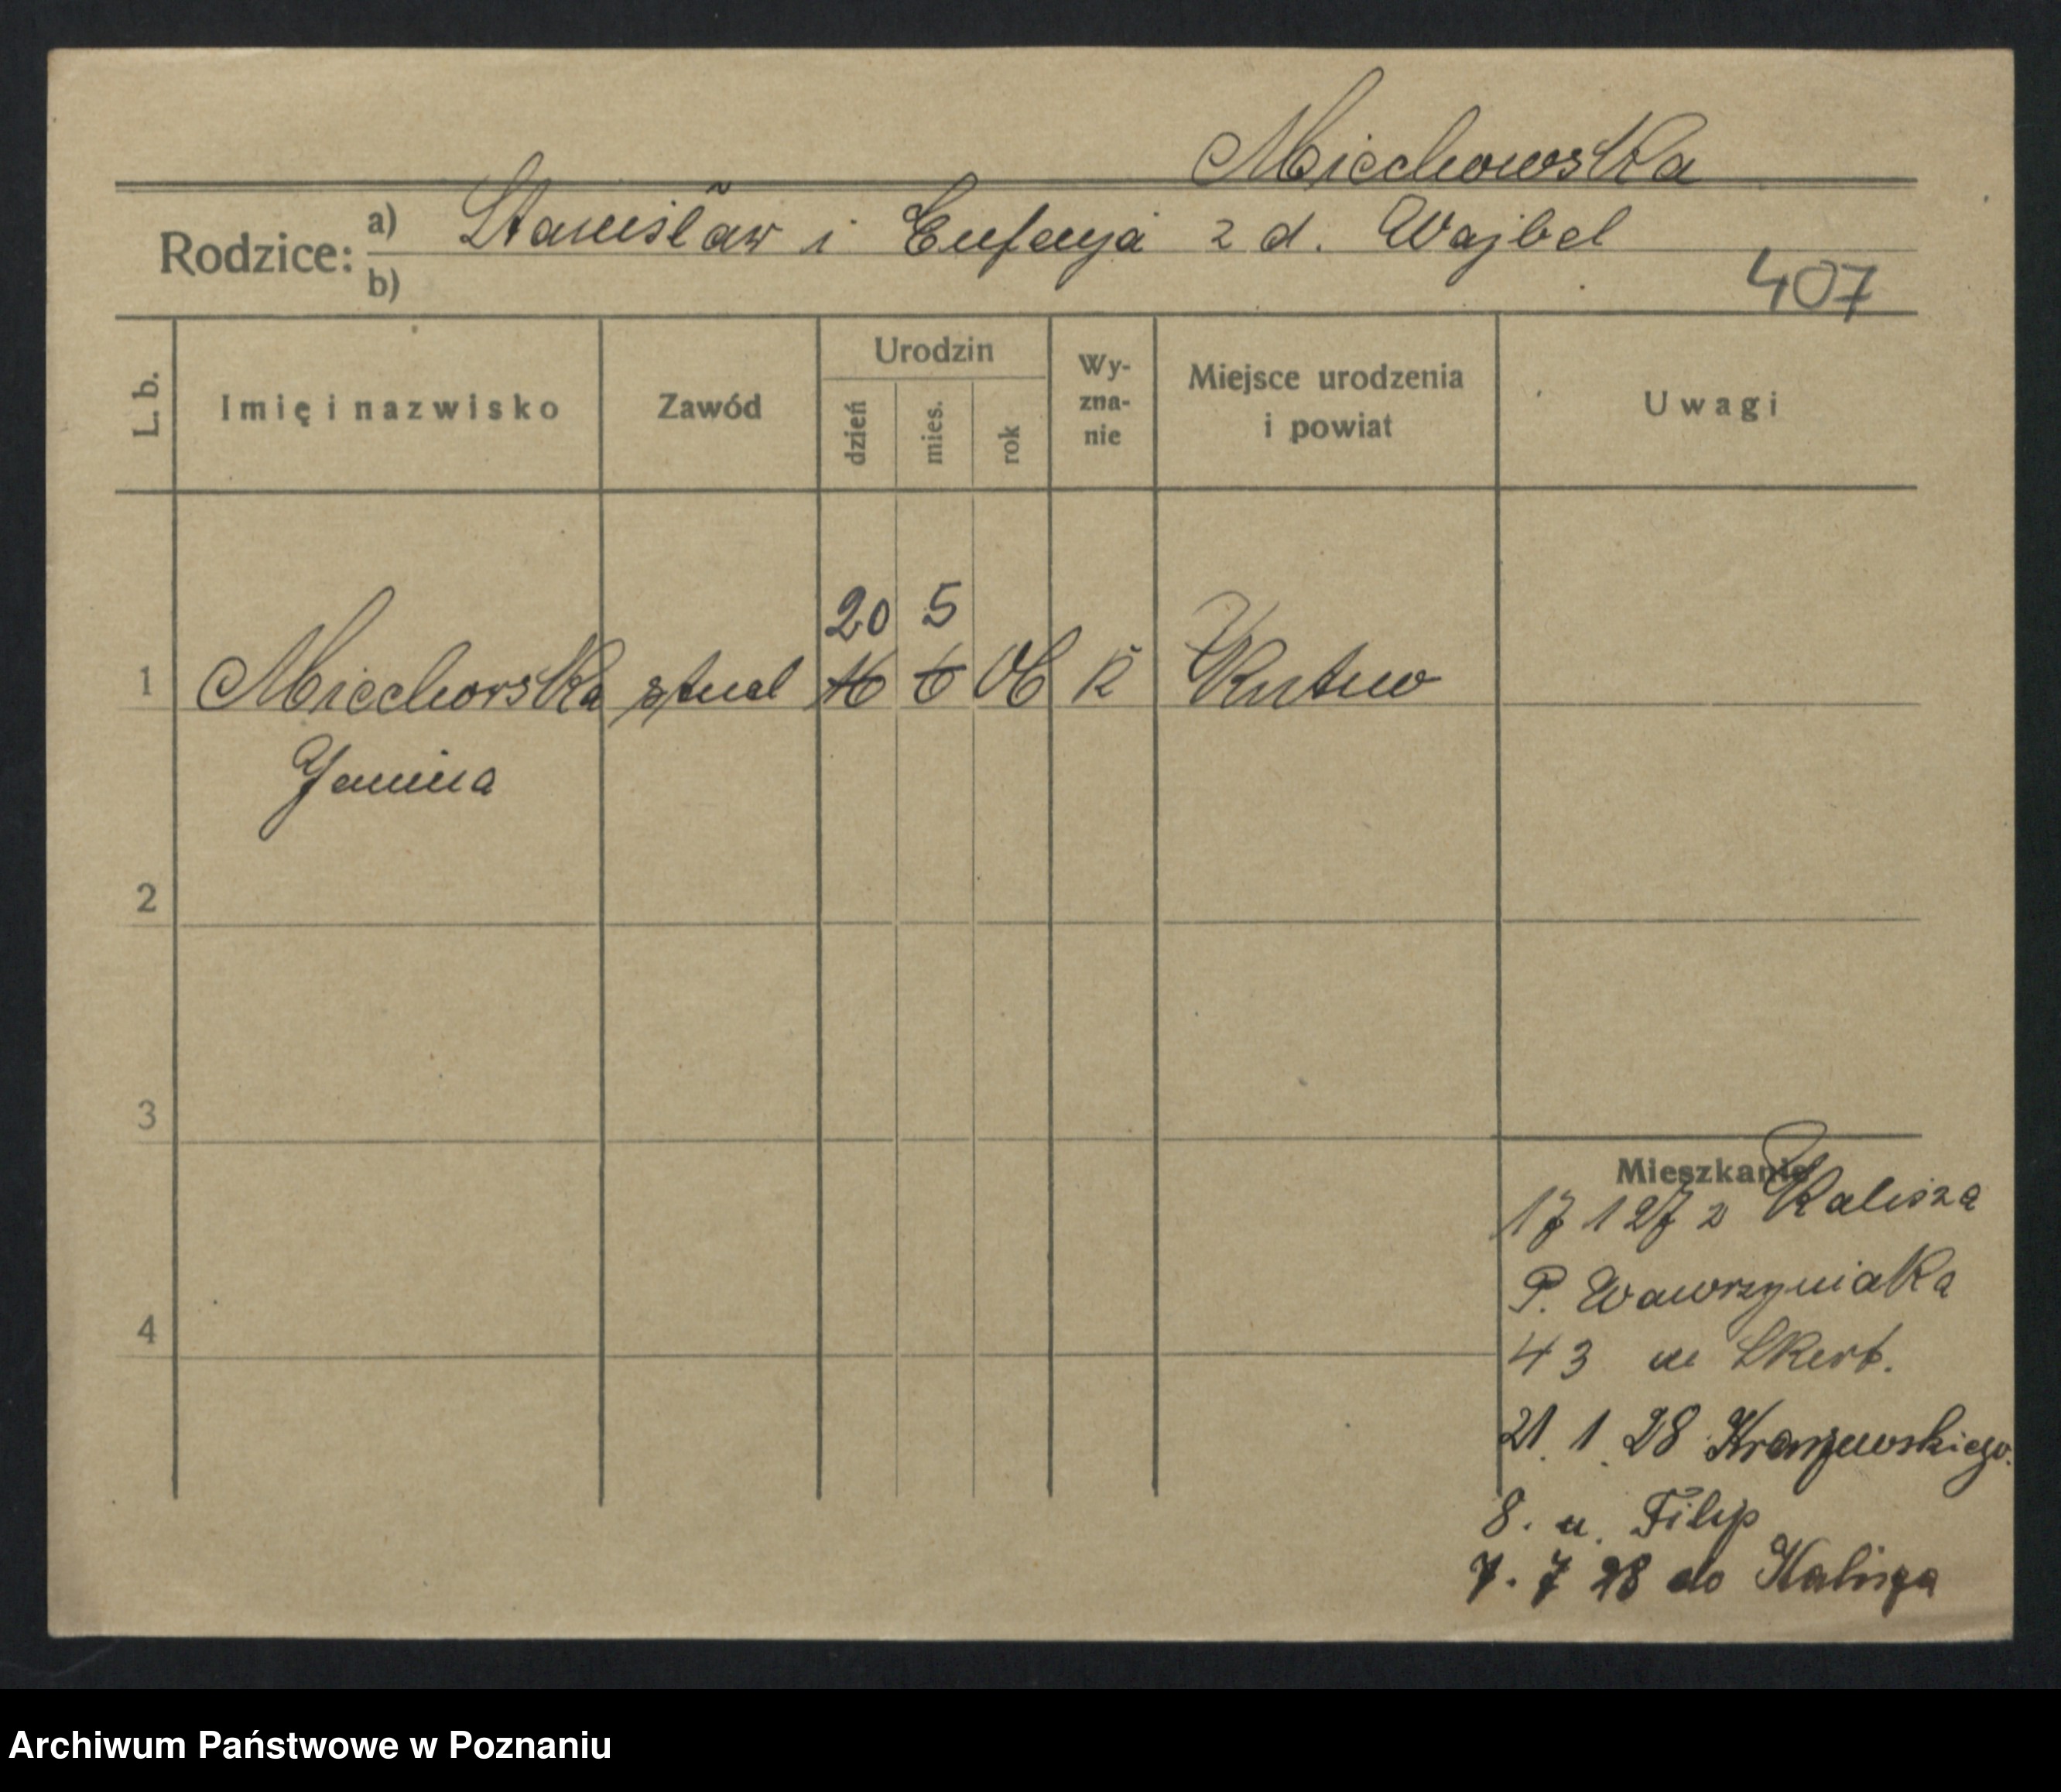 Miechowska
Rodzice: a) Stanisław i Eufenja z d. Wajbel
b)
407
L. b. Imię i nazwisko Zawód Urodzin dzień mies. rok Wy-zna-nie Miejsce urodzenia i powiat Uwagi
20 5
1 Miechowska stud 16 6 06 k Kutno
Janina
2
3
Mieszkanie
17 1 27 z Kalisza
P. Wawrzyniaka
4
43 u Skert.
21. 1. 28 Kraszewskiego
8. u. Filip
7. 7 28 do Kalisza
Archiwum Państwowe w Poznaniu